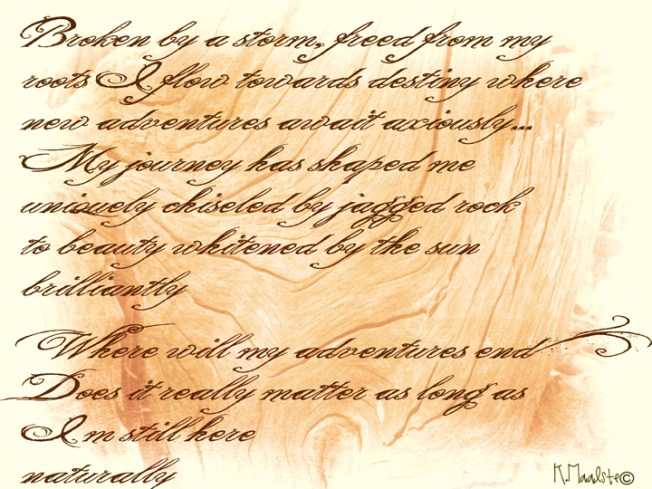 Broken by a storm, freed from my
roots I flow towards destiny where
new adventures await axiously...
My journey has shaped me
uniquely chiseled by jagged rock
to beauty whitened by the sun
brilliantly
Where will my adventures end
Does it really matter as long as
I m still here
naturally
K.Maalste©